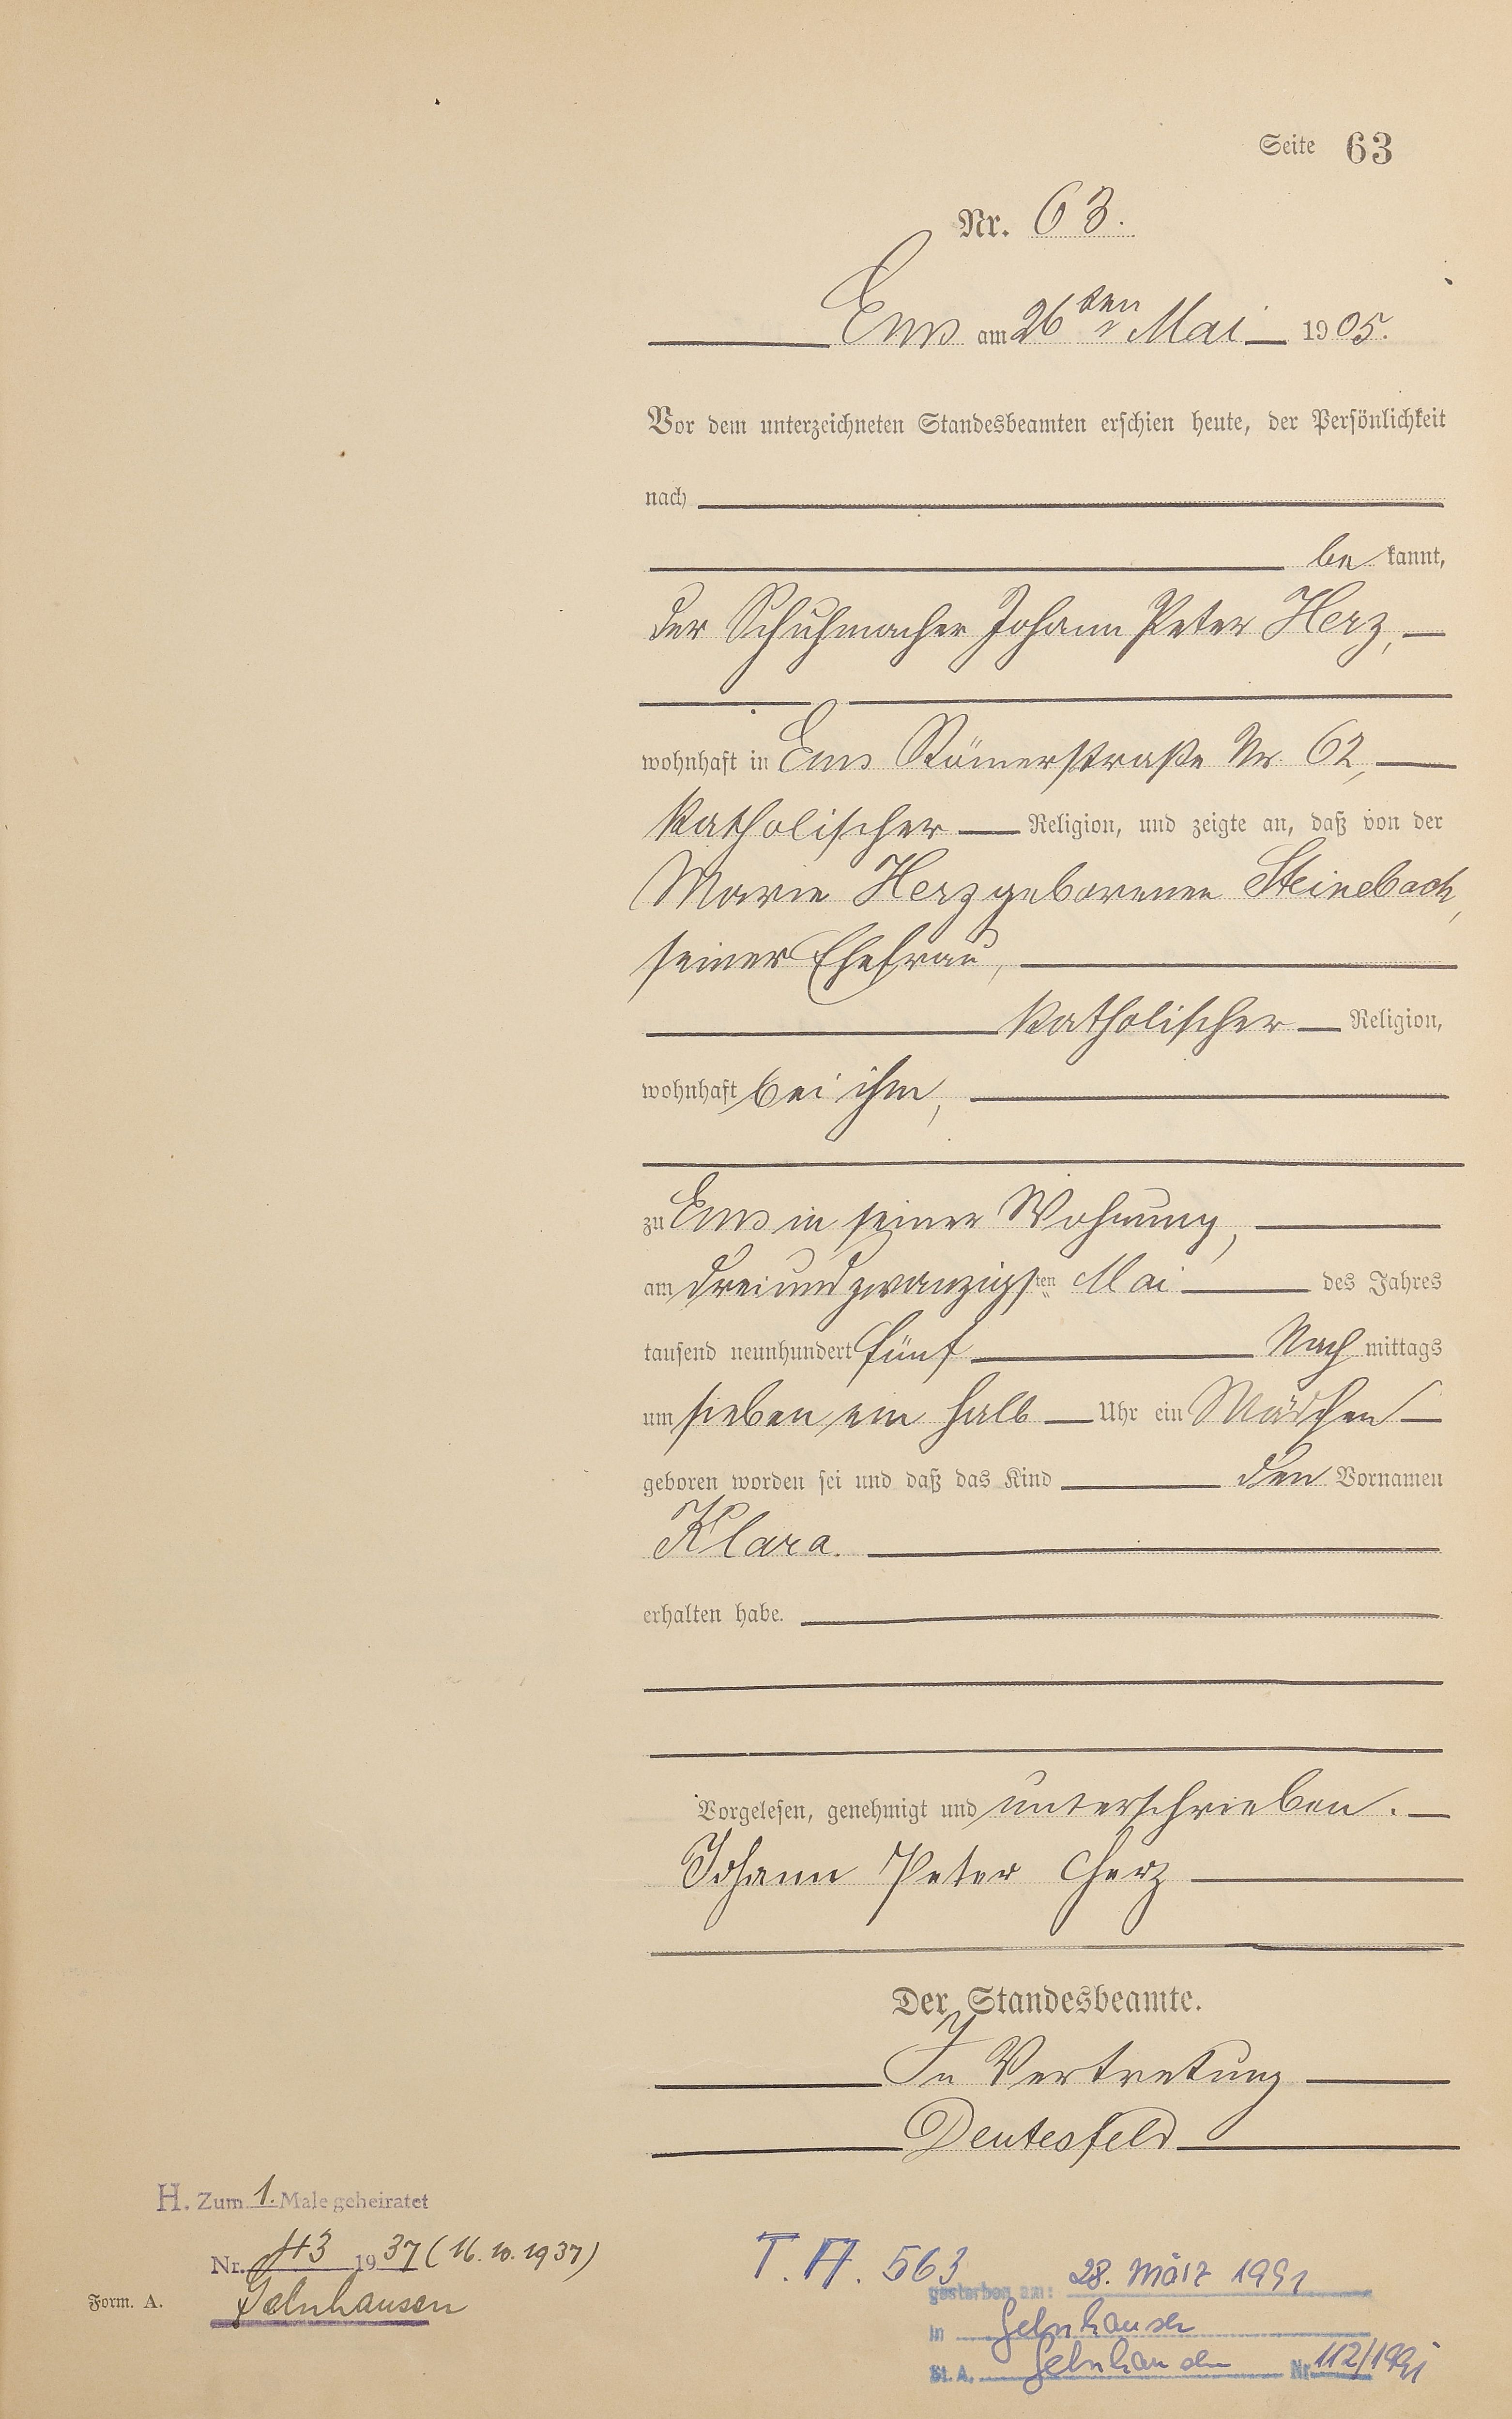 Seite 63
Nr. 63.
Ems am 26ten Mai 1905.
Vor dem unterzeichneten Standesbeamten erschien heute, der Persönlichkeit
nach
be kannt,
der Schuhmacher Johann Peter Herz,
wohnhaft in Ems Römerstraße Nr. 62,
katholischer Religion, und zeigte an, daß von der
Marie Herz geborenen Steinebach,
seiner Ehefrau,
katholischer Religion,
wohnhaft bei ihm,
zu Ems in seiner Wohnung,
am dreiundzwanzigsten Mai des Jahres
tausend neunhundert fünf Nach mittags
um sieben ein halb Uhr ein Mädchen
geboren worden sei und daß das Kind den Vornamen
Klara.
erhalten habe.
Vorgelesen, genehmigt und unterschrieben.
Johann Peter Herz
Der Standesbeamte.
In Vertretung
Deutesfeld
H. Zum 1. Male geheiratet
Nr. 43 1937 (16.10.1937)
Gelnhausen
Form. A.
T. A. 563
gestorben am: 28. März 1991
in Gelnhausen
St. A. Gelnhausen Nr. 112/1991